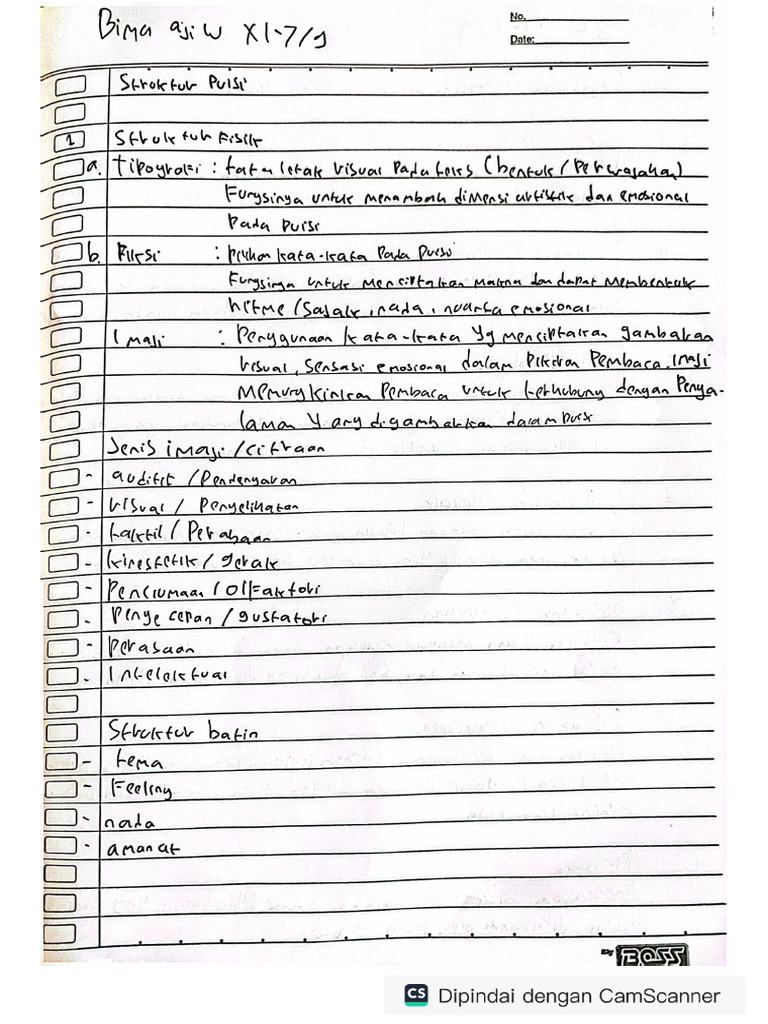 Bima aji W XI-7/9
No.
Date:
Struktur Puisi
1 Struktur Fisik
a. Tipografi : tata letak visual pada teks (bentuk / Perwajahan)
Fungsinya untuk menambah dimensi artistik dan emosional
Pada Puisi
b. Diksi : pilihan kata-kata Pada Puisi
Fungsinya untuk menciptakan makna dan dapat Membentuk
ritme / Sajak, nada, nuansa emosional
Imaji : Penggunaan kata-kata yg menciptakan gambaran
visual, sensasi emosional dalam Pikiran Pembaca. Imaji
Memungkinkan Pembaca untuk terhubung dengan Penga-
laman yang digambarkan dalam Puisi
Jenis imaji / citraan
- auditif / Pendengaran
- visual / Penglihatan
- taktil / Perabaan
- kinestetik / gerak
- Penciumaan / Olfaktori
- Penge capan / gustatori
- Perasaan
- Intelektual
Struktur batin
- tema
- Feeling
- nada
- amanat
By BOSS
CS Dipindai dengan CamScanner